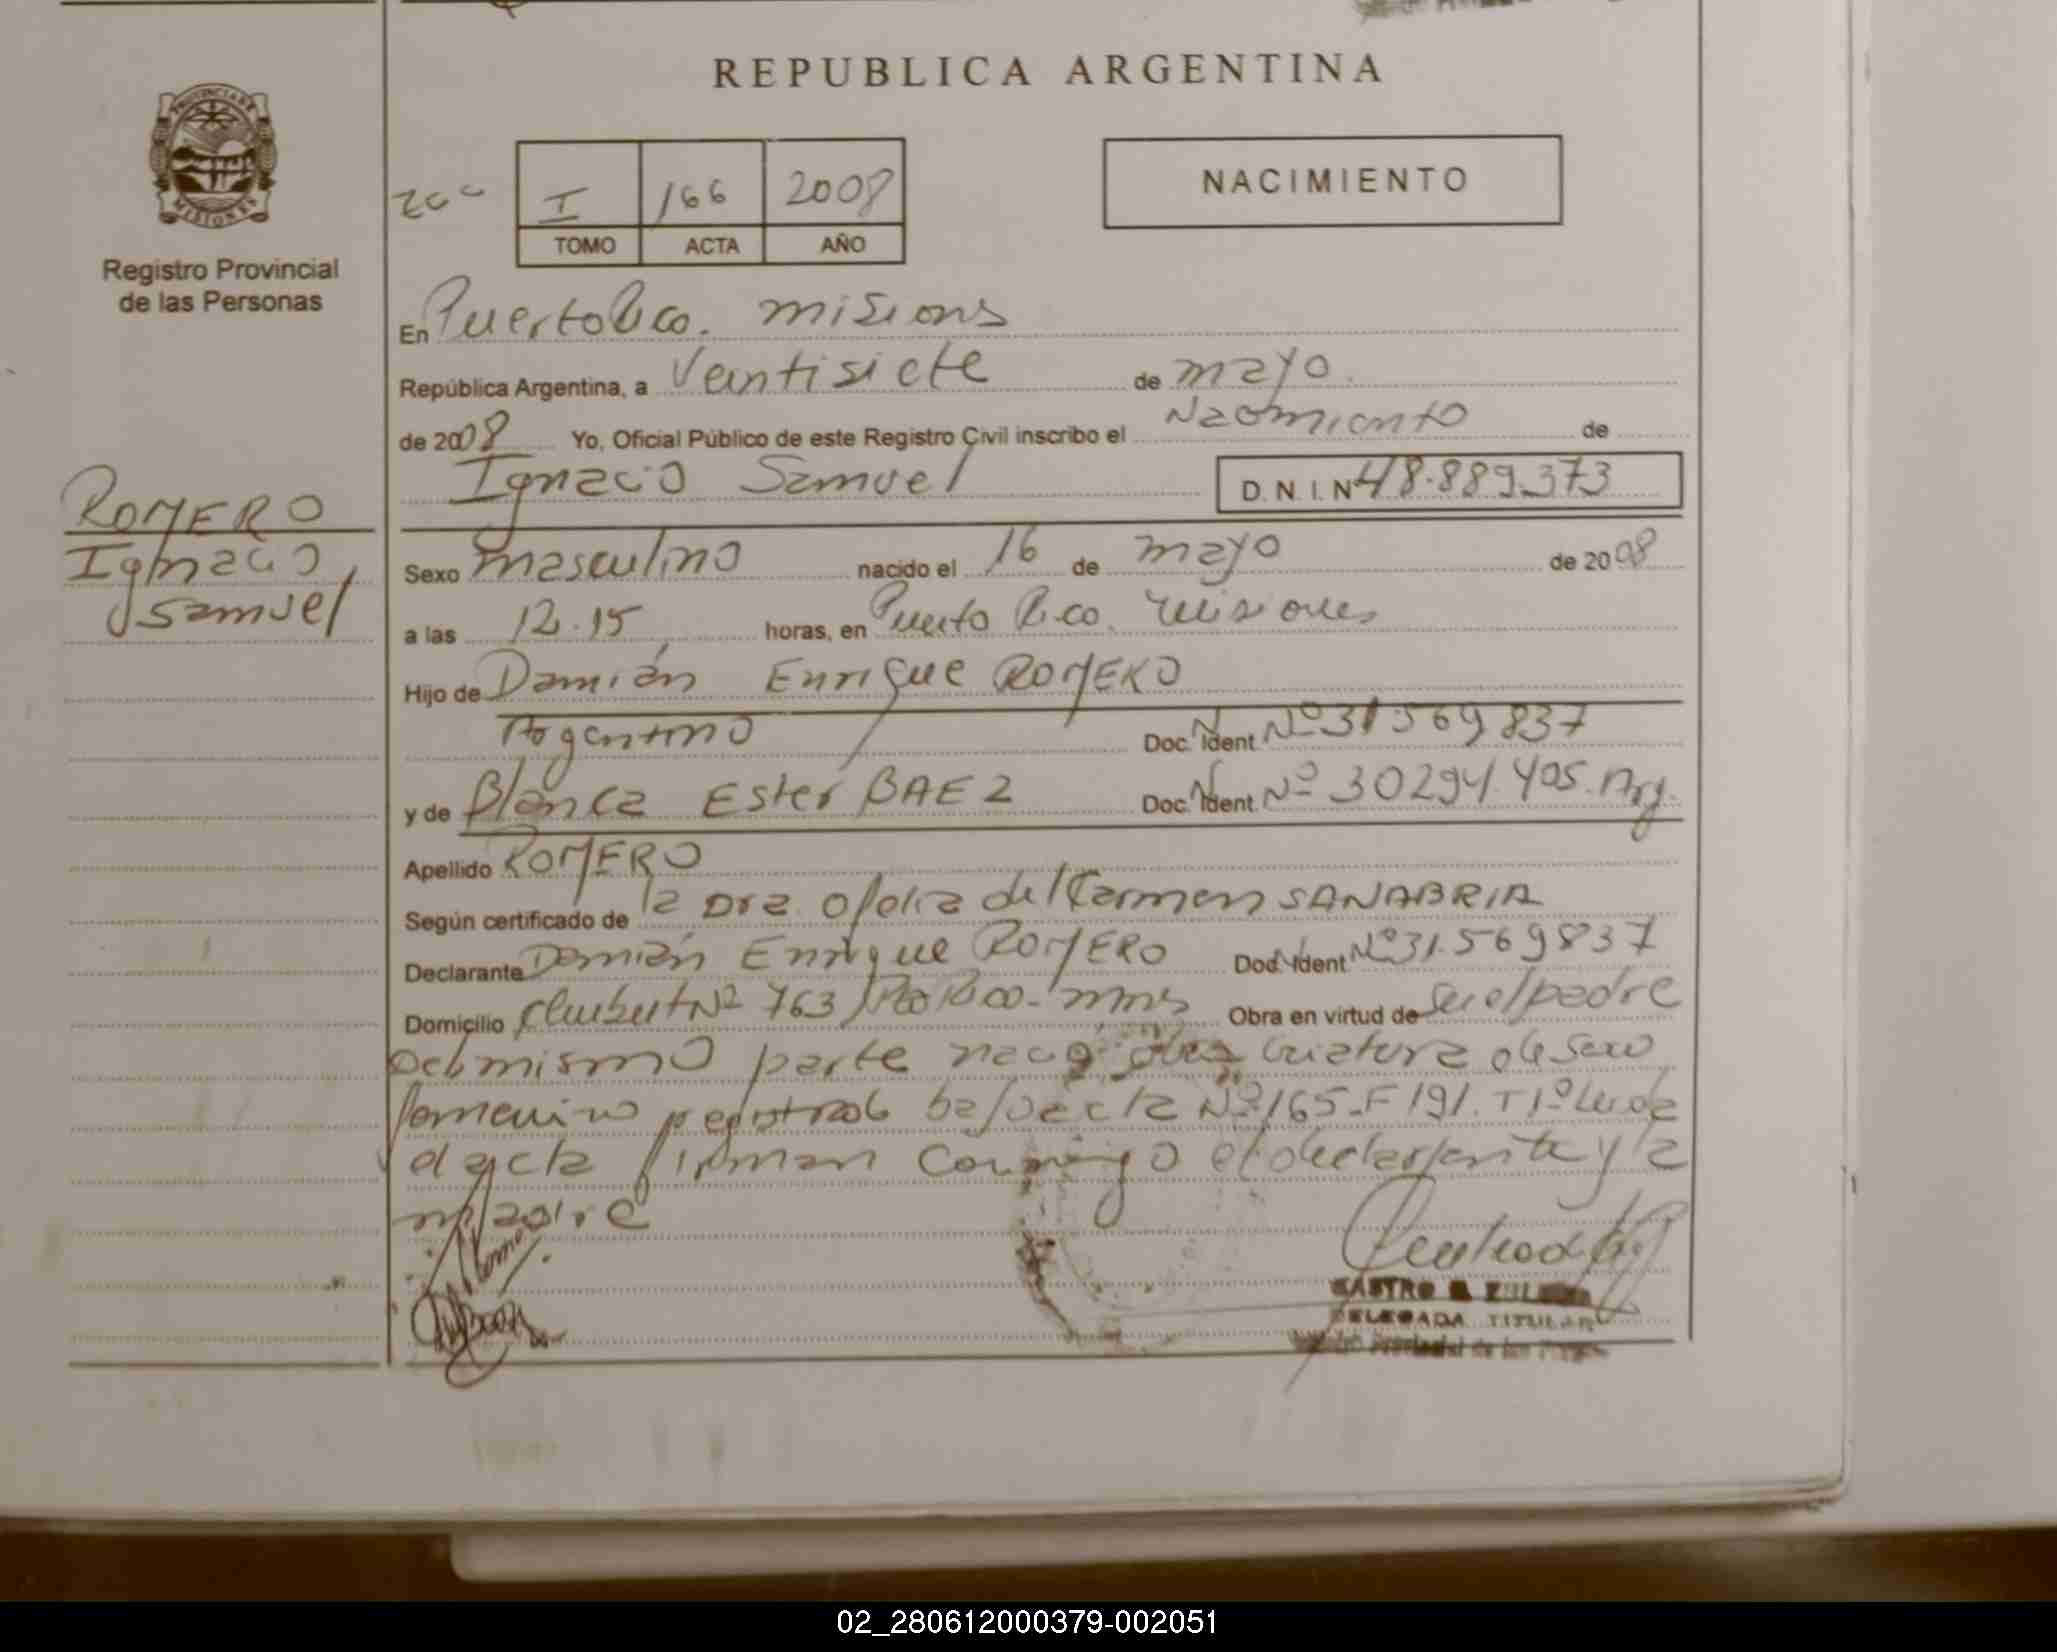 REPUBLICA ARGENTINA
PROVINCIA DE
MISIONES
Registro Provincial
de las Personas
I 166 2008
TOMO ACTA AÑO
NACIMIENTO
En Puerto Rico. Misions
República Argentina, a Veintisiete de mayo.
de 2008 Yo, Oficial Público de este Registro Civil inscribo el Nacimiento de
Ignacio Samuel D.N.I.Nº 48.889.373
ROMERO
Ignacio
Samuel
Sexo masculino nacido el 16 de mayo de 2008
a las 12.15 horas, en Puerto Rico. Misiones
Hijo de Damián Enrique ROMERO
Argentino Doc. Ident Nº 31569837
y de Blanca Ester BAEZ Doc. Ident Nº 30294.405. Arg.
Apellido ROMERO
Según certificado de la Dra. Ofelia del Carmen SANABRIA
Declarante Damián Enrique ROMERO Doc. Ident Nº 31.569837
Domicilio Nº 763 Pto Rico - mnes Obra en virtud de ser el padre
Del mismo parte nació otra criatura de sexo
femenino registrada bajo acta Nº 165-F 191. T 1º Leída
el acta firman conmigo el declarante y la
madre
CASTRO
DELEGADA TITULAR
Provincial de las
02_280612000379-002051